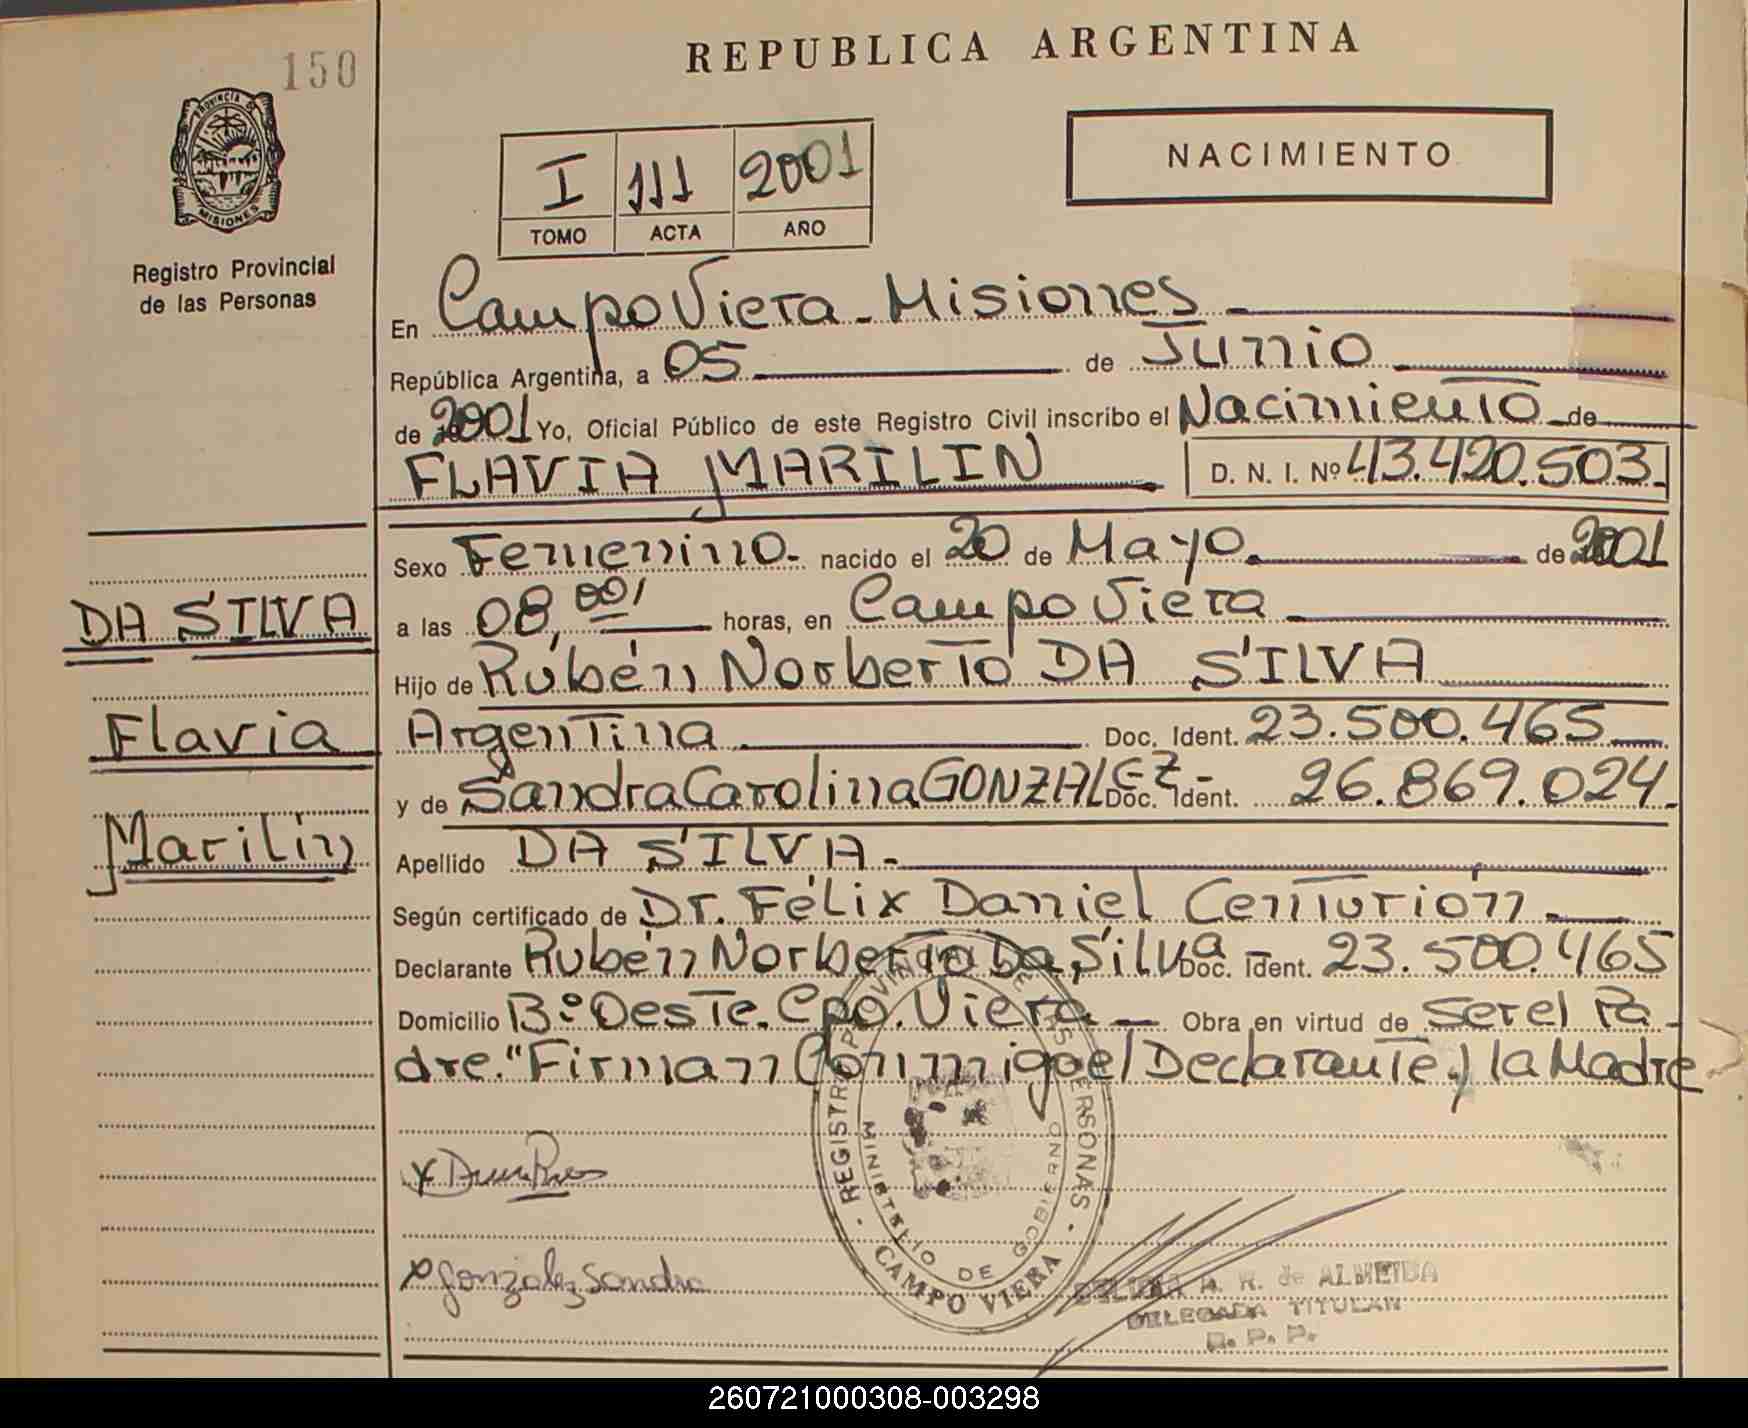 150
PROVINCIA DE
MISIONES
Registro Provincial
de las Personas
REPUBLICA ARGENTINA
I 111 2001
TOMO ACTA AÑO
NACIMIENTO
En Campo Viera - Misiones
República Argentina, a 05 de Junio
de 2001 Yo, Oficial Público de este Registro Civil inscribo el Nacimiento de
FLAVIA MARILIN D. N. I. Nº 43.420.503.
Sexo Femenino. nacido el 20 de Mayo. de 2001
a las 08,00' horas, en Campo Viera
Hijo de Rúbén Norberto DA SILVA
Argentina Doc. Ident. 23.500.465
y de Sandra Carolina GONZALEZ - Doc. Ident. 26.869.024.
Apellido DA SILVA.
Según certificado de Dr. Félix Daniel Centurión
Declarante Rubén Norberto Da Silva Doc. Ident. 23.500.465
Domicilio Bº Oeste. Cpo. Viera Obra en virtud de ser el Pa-
dre. "Firman Conmigo el Declarante y la Madre
DA SILVA
Flavia
Marilin
x
x Gonzalez Sandra
REGISTRO PROVINCIAL DE LAS PERSONAS
MINISTERIO DE GOBIERNO
CAMPO VIERA
R. de ALMEIDA
DELEGADA TITULAR
R. P. P.
260721000308-003298